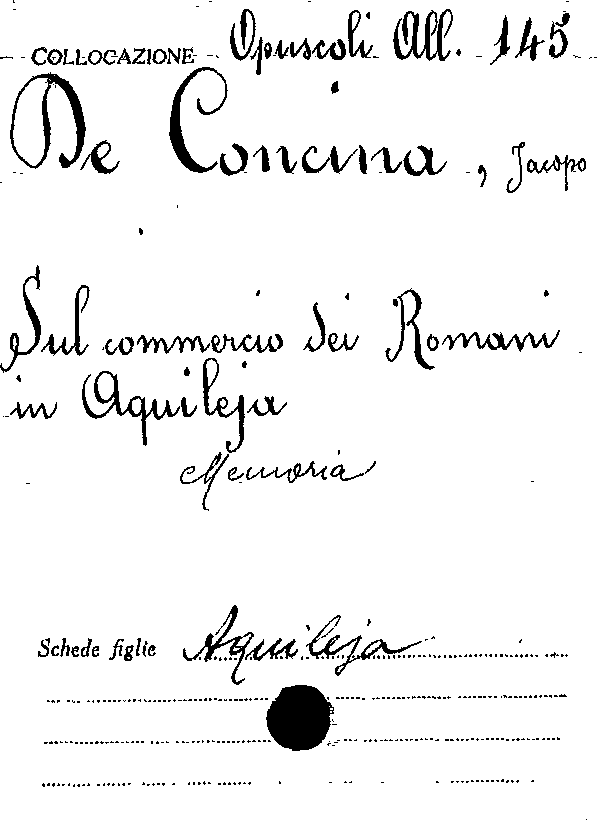 COLLOCAZIONE Opuscoli All. 145
De Concina, Jacopo
Sul commercio dei Romani
in Aquileja
Memoria
Schede figlie Aquileja